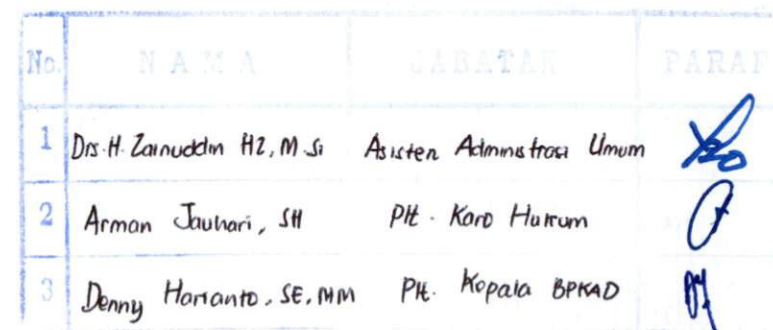 No. NAMA JABATAN PARAF
1 Drs. H. Zainuddin HZ, M.Si Asisten Administrasi Umum
2 Arman Jauhari, SH Plt. Karo Hukum
3 Denny Harianto, SE, MM Plt. Kepala BPKAD